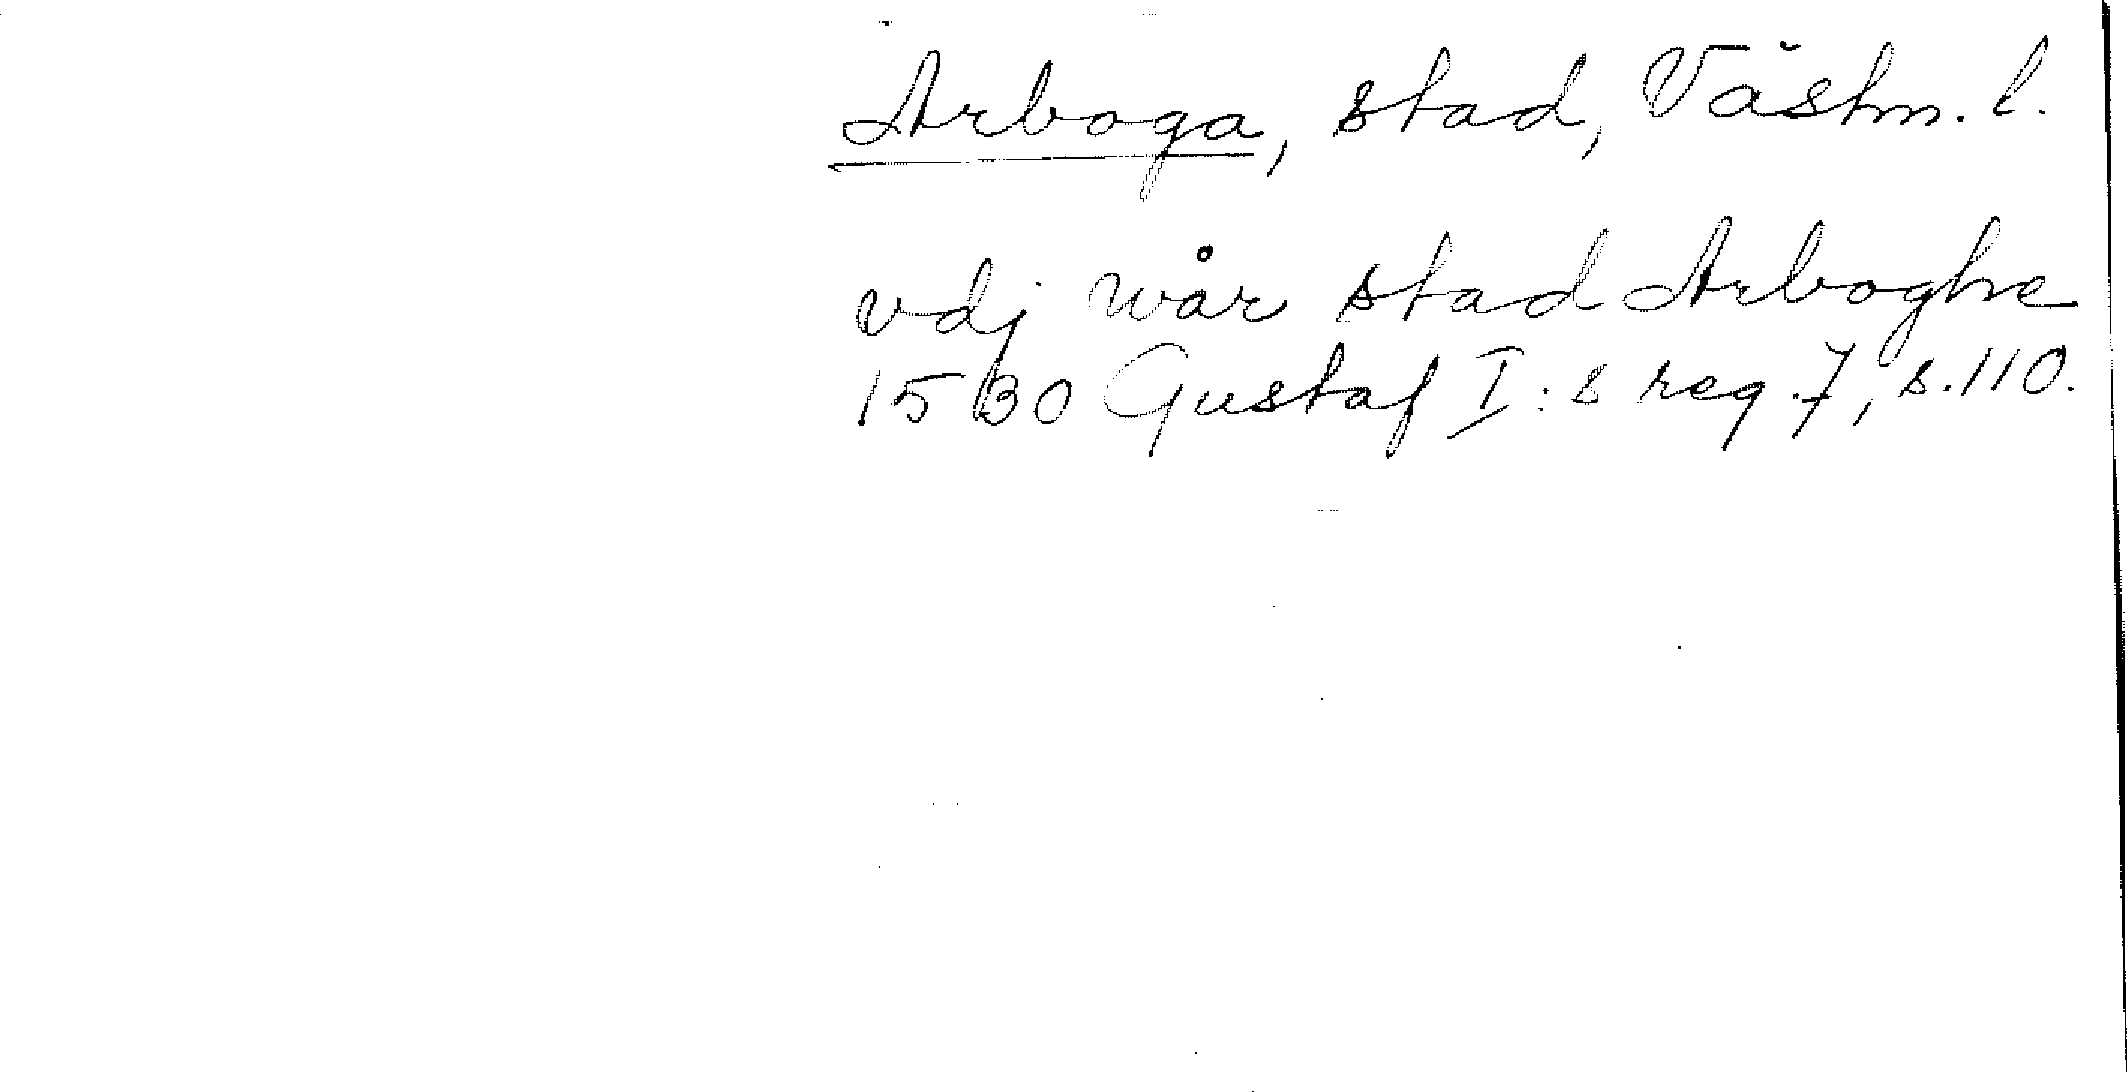 Arboga, stad, Västm. l.
vdj wår stad Arboghe
1530 Gustaf I:s reg. 7, s. 110.